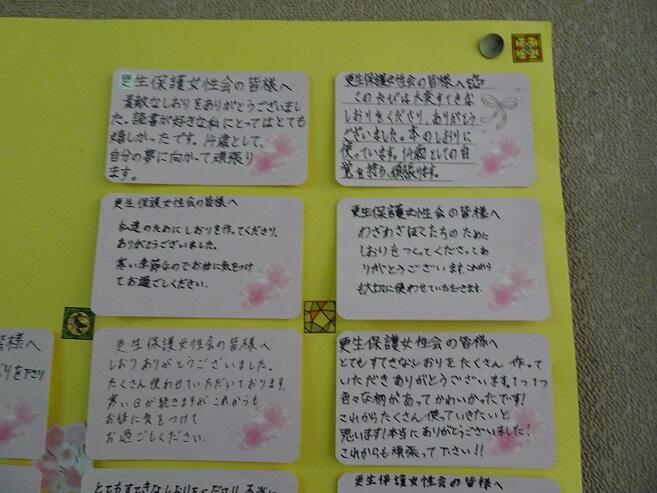 更生保護女性会の皆様へ
素敵なしおりをありがとうございまし
た。読書が好きな私にとってはとても
嬉しかったです。14歳として、
自分の夢に向かって頑張り
ます。
更生保護女性会の皆様へ
このたびは大変すてきな
しおりをくださり、ありがとう
ございました。本のしおりに
使っています。14歳としての自
覚を持ち、頑張ります。
更生保護女性会の皆様へ
私達のために しおりを作ってくださり、
ありがとうございました。
寒い季節なのでお体に気をつけ
てお過ごしください。
更生保護女性会の皆様へ
わざわざぼくたちのために
しおりをつくってくださってあ
りがとうございます。これから
も大切に使わせていただきます。
更生保護女性会の皆様へ
しおりありがとうございました。
たくさん使わせていただいております。
寒い日が続きますがこれからも
お体に気をつけて
お過ごしください。
更生保護女性会の皆様へ
とてもすてきなしおりをたくさん 作って
いただきありがとうございます。1つ1つ
色々な柄があってかわいかったです!
これからたくさん使っていきたいと
思います!本当にありがとうございました!
これからも頑張って下さい!!
皆様へ
りを下さり
とてもすてきなしおりをくださり 本当に
更生保護女性会の皆様へ